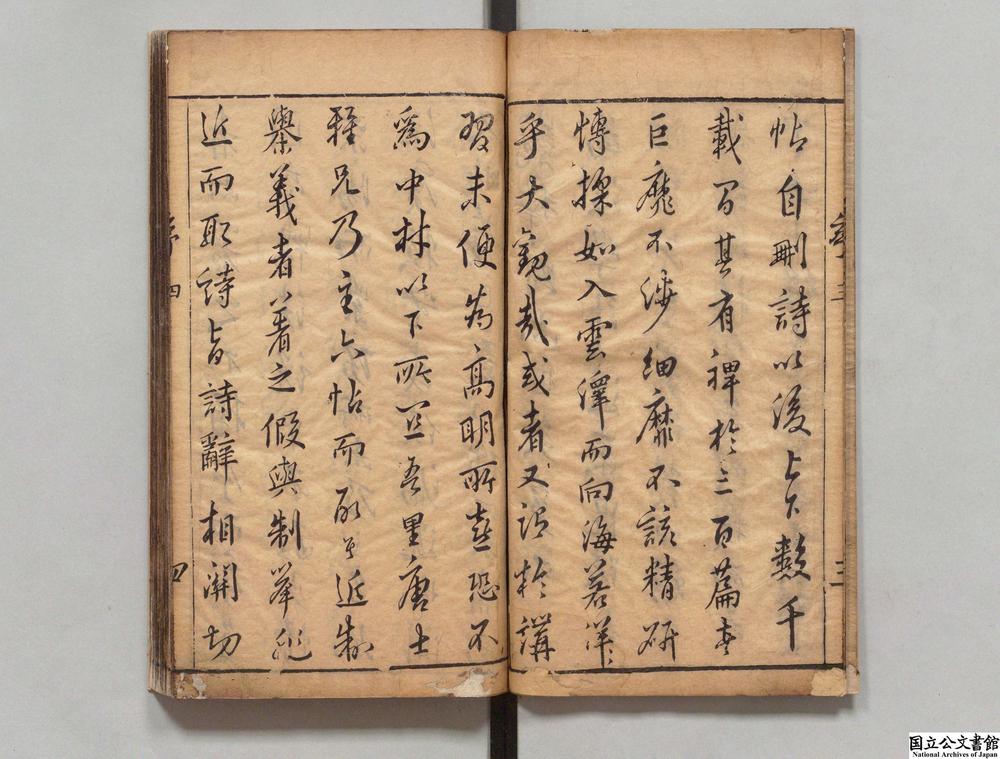 帖自刪詩以後上下數千
載間其有裨於三百篇者
巨靡不條細靡不該精研
博採如入雲澤而向海若洋洋
乎大觀哉或者又謂於講
習未便為高明所喜恐不
為中材以下所宜吾里唐士
雅兄乃主六帖而取其近制
舉義者著之假與制舉
近而取詩旨詩辭相關切
序三
三
序四
四
国立公文書館
National Archives of Japan